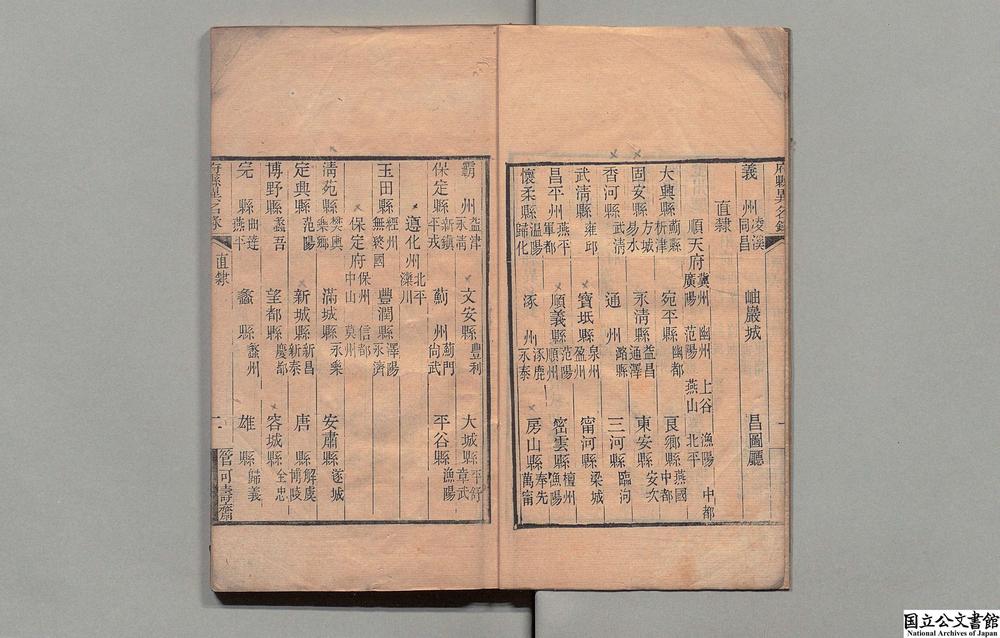 府縣異名錄
義州 凌溪 同昌 岫巖城 昌圖廳
直隸
順天府 冀州 幽州 上谷 漁陽 中都 廣陽 范陽 燕山 北平
大興縣 薊縣 析津 宛平縣 幽都 良鄉縣 燕國 中都
固安縣 方城 易水 永清縣 益昌 通澤 東安縣 安次
香河縣 武清 通州 潞縣 三河縣 臨泃
武清縣 雍邱 寶坻縣 泉州 盈州 甯河縣 梁城
昌平州 燕平 軍都 順義縣 范陽 順州 密雲縣 檀州 漁陽
懷柔縣 溫陽 歸化 涿州 涿鹿 永泰 房山縣 奉先 萬甯
霸州 益津 永清 文安縣 豐利 大城縣 平舒 章武
保定縣 新鎮 平戎 薊州 薊門 尚武 平谷縣 漁陽
遵化州 北平 灤川
玉田縣 經州 無終國 豐潤縣 澤陽 永濟
保定府 保州 信都 中山 莫州
清苑縣 樊輿 樂鄉 滿城縣 永樂 安肅縣 遂城
定興縣 范陽 新城縣 新昌 新泰 唐縣 解虞 博陵
博野縣 蠡吾 望都縣 慶都 容城縣 全忠
完縣 曲逆 燕平 蠡縣 蠡州 雄縣 歸義
府縣異名錄 直隸 二 管可壽齋
国立公文書館
National Archives of Japan